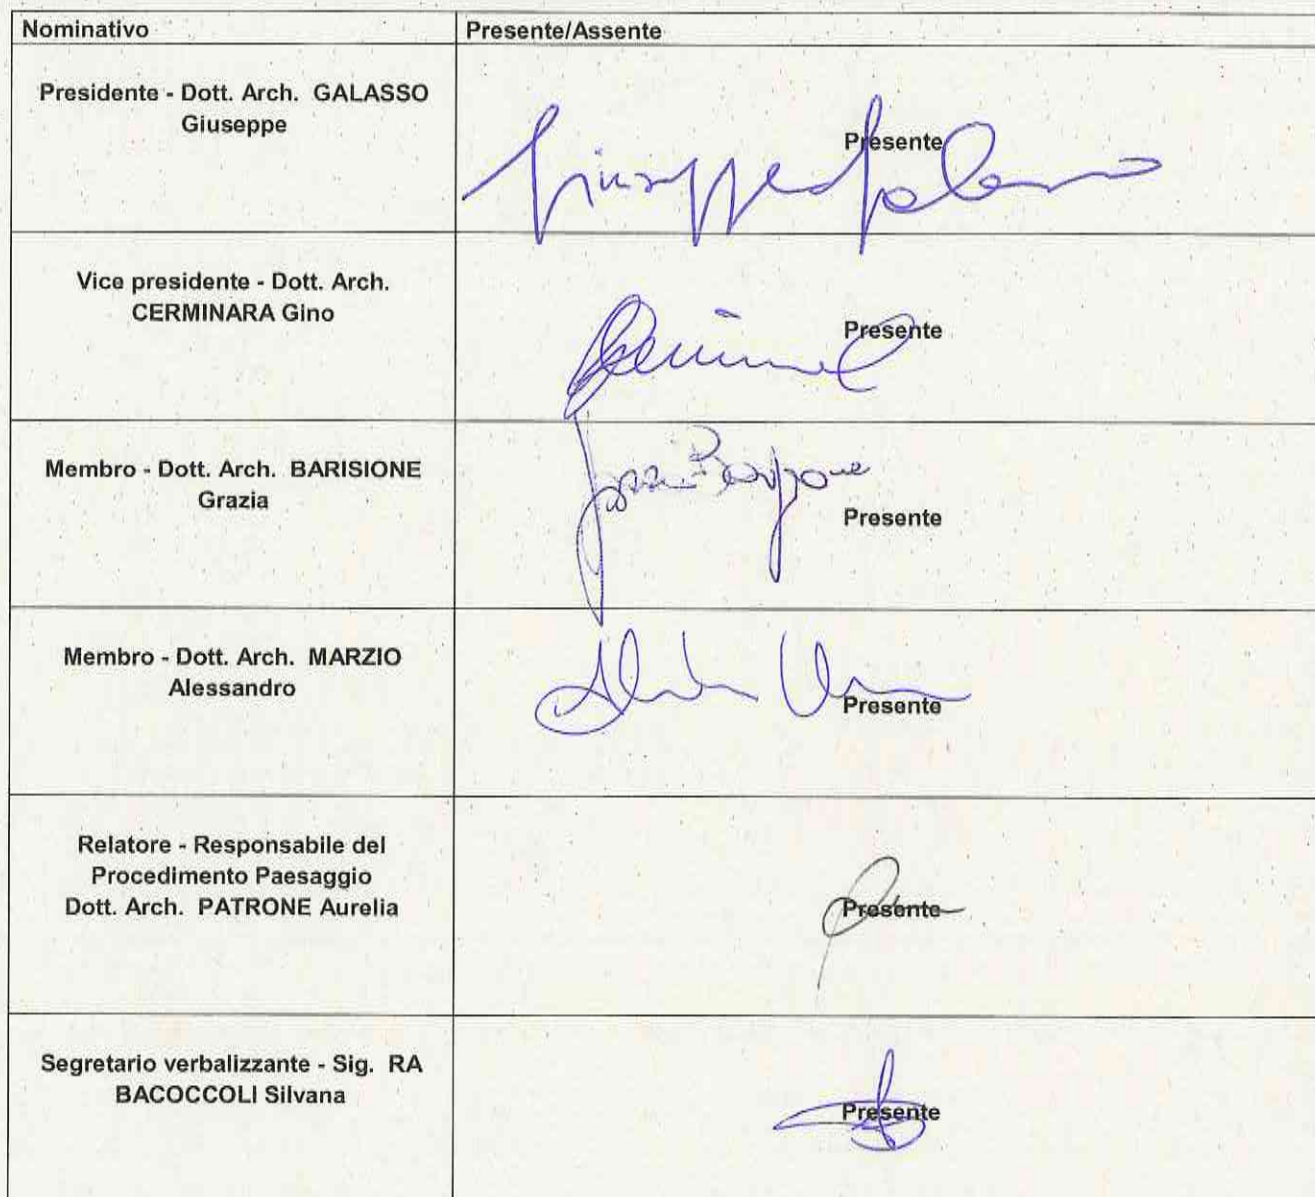 Nominativo Presente/Assente
Presidente - Dott. Arch. GALASSO
Giuseppe
Presente
Giuseppe Galasso
Vice presidente - Dott. Arch.
CERMINARA Gino
Presente
Membro - Dott. Arch. BARISIONE
Grazia
Presente
Membro - Dott. Arch. MARZIO
Alessandro
Presente
Relatore - Responsabile del
Procedimento Paesaggio
Dott. Arch. PATRONE Aurelia
Presente
Segretario verbalizzante - Sig. RA
BACOCCOLI Silvana
Presente